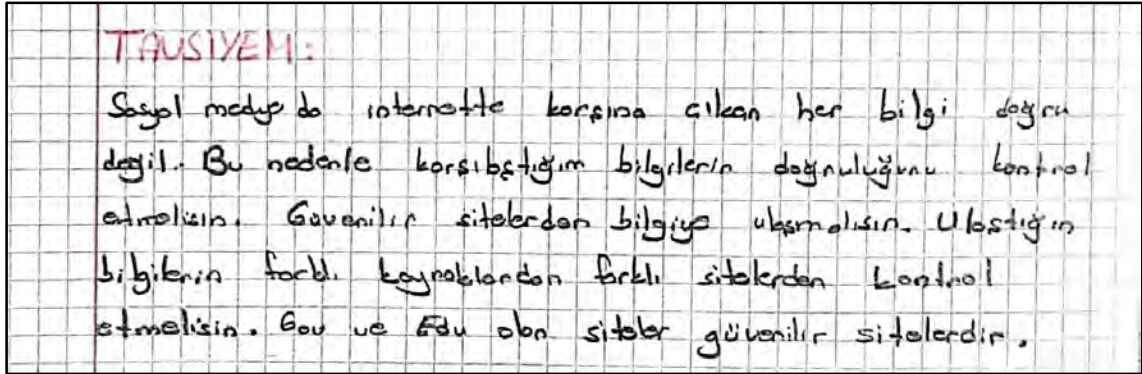 TAVSİYEM:
Sosyal medya da internette karşına çıkan her bilgi doğru
değil. Bu nedenle karşılaştığım bilgilerin doğruluğunu kontrol
etmelisin. Güvenilir sitelerden bilgiye ulaşmalısın. Ulaştığın
bilgilerin farklı kaynaklardan farklı sitelerden kontrol
etmelisin. Gov ve Edu olan siteler güvenilir sitelerdir.